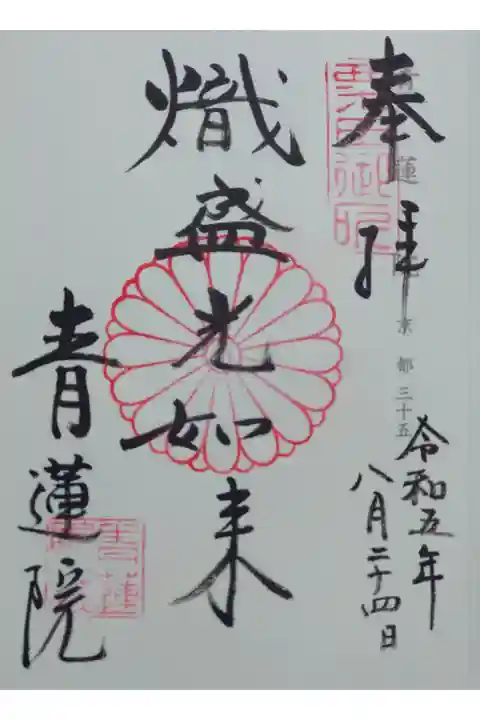 奉拝
青蓮院 京都 三十五
令和五年
八月二十四日
粟田御所
熾盛光如来
青蓮院